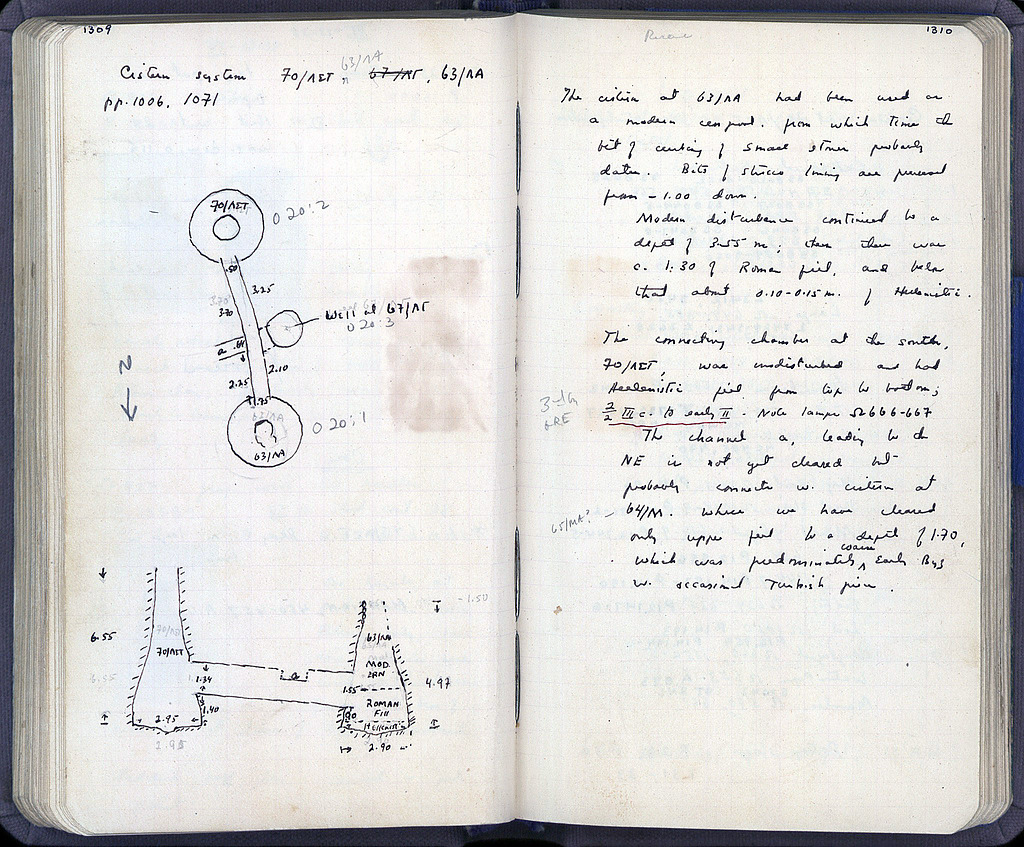 1309
63/ΛΑ
Cistern system 70/ΛΣΤ, 67/ΛΤ, 63/ΛΑ
pp. 1006, 1071
70/ΛΣΤ
O 20:2
.50
3.25
3.70
3.70
Well at 67/ΛΤ
O 20:3
a
.64
N
2.25
2.10
.75
63/ΛΑ
O 20:1
63/ΛΑ
-1.50
6.55
70/ΛΣΤ
70/ΛΣΤ
63/ΛΑ
MOD
ERN
a
6.55
1.34
1.55
4.97
1.40
ROMAN
Fill
.90
2.95
HELLENISTIC
2.95
2.90
1310
The cistern at 63/ΛΑ had been used as
a modern cesspool. from which time the
bit of curbing of small stones probably
dates. Bits of stucco lining are preserved
from -1.00 down.
Modern disturbance continued to a
depth of 3.55 m; then there was
c. 1.30 of Roman fill, and below
that about 0.10-0.15 m. of Hellenistic.
The connecting chamber at the south,
70/ΛΣΤ, was undisturbed and had
Hellenistic fill from top to bottom;
3rd
2/2 III c. to early II. Note lamps Ω 666-667
The channel a, leading to the
NE is not yet cleared but
probably connects w. cistern at
65/ΜΑ? — 64/Μ. where we have cleared
only upper fill to a depth of 1.70,
coarse
which was predominately Early Byz
w. occasional Turkish piece.